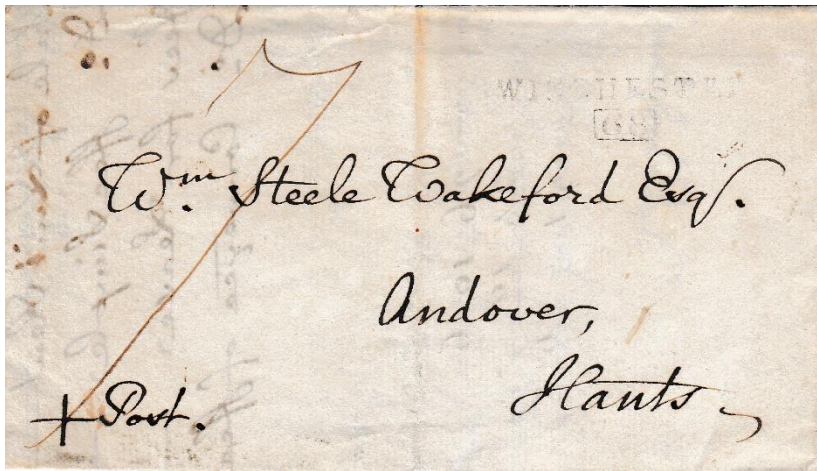 WINCHESTER
68
7
Wm. Steele Wakeford Esqr.
Andover,
Hants
+ Post.